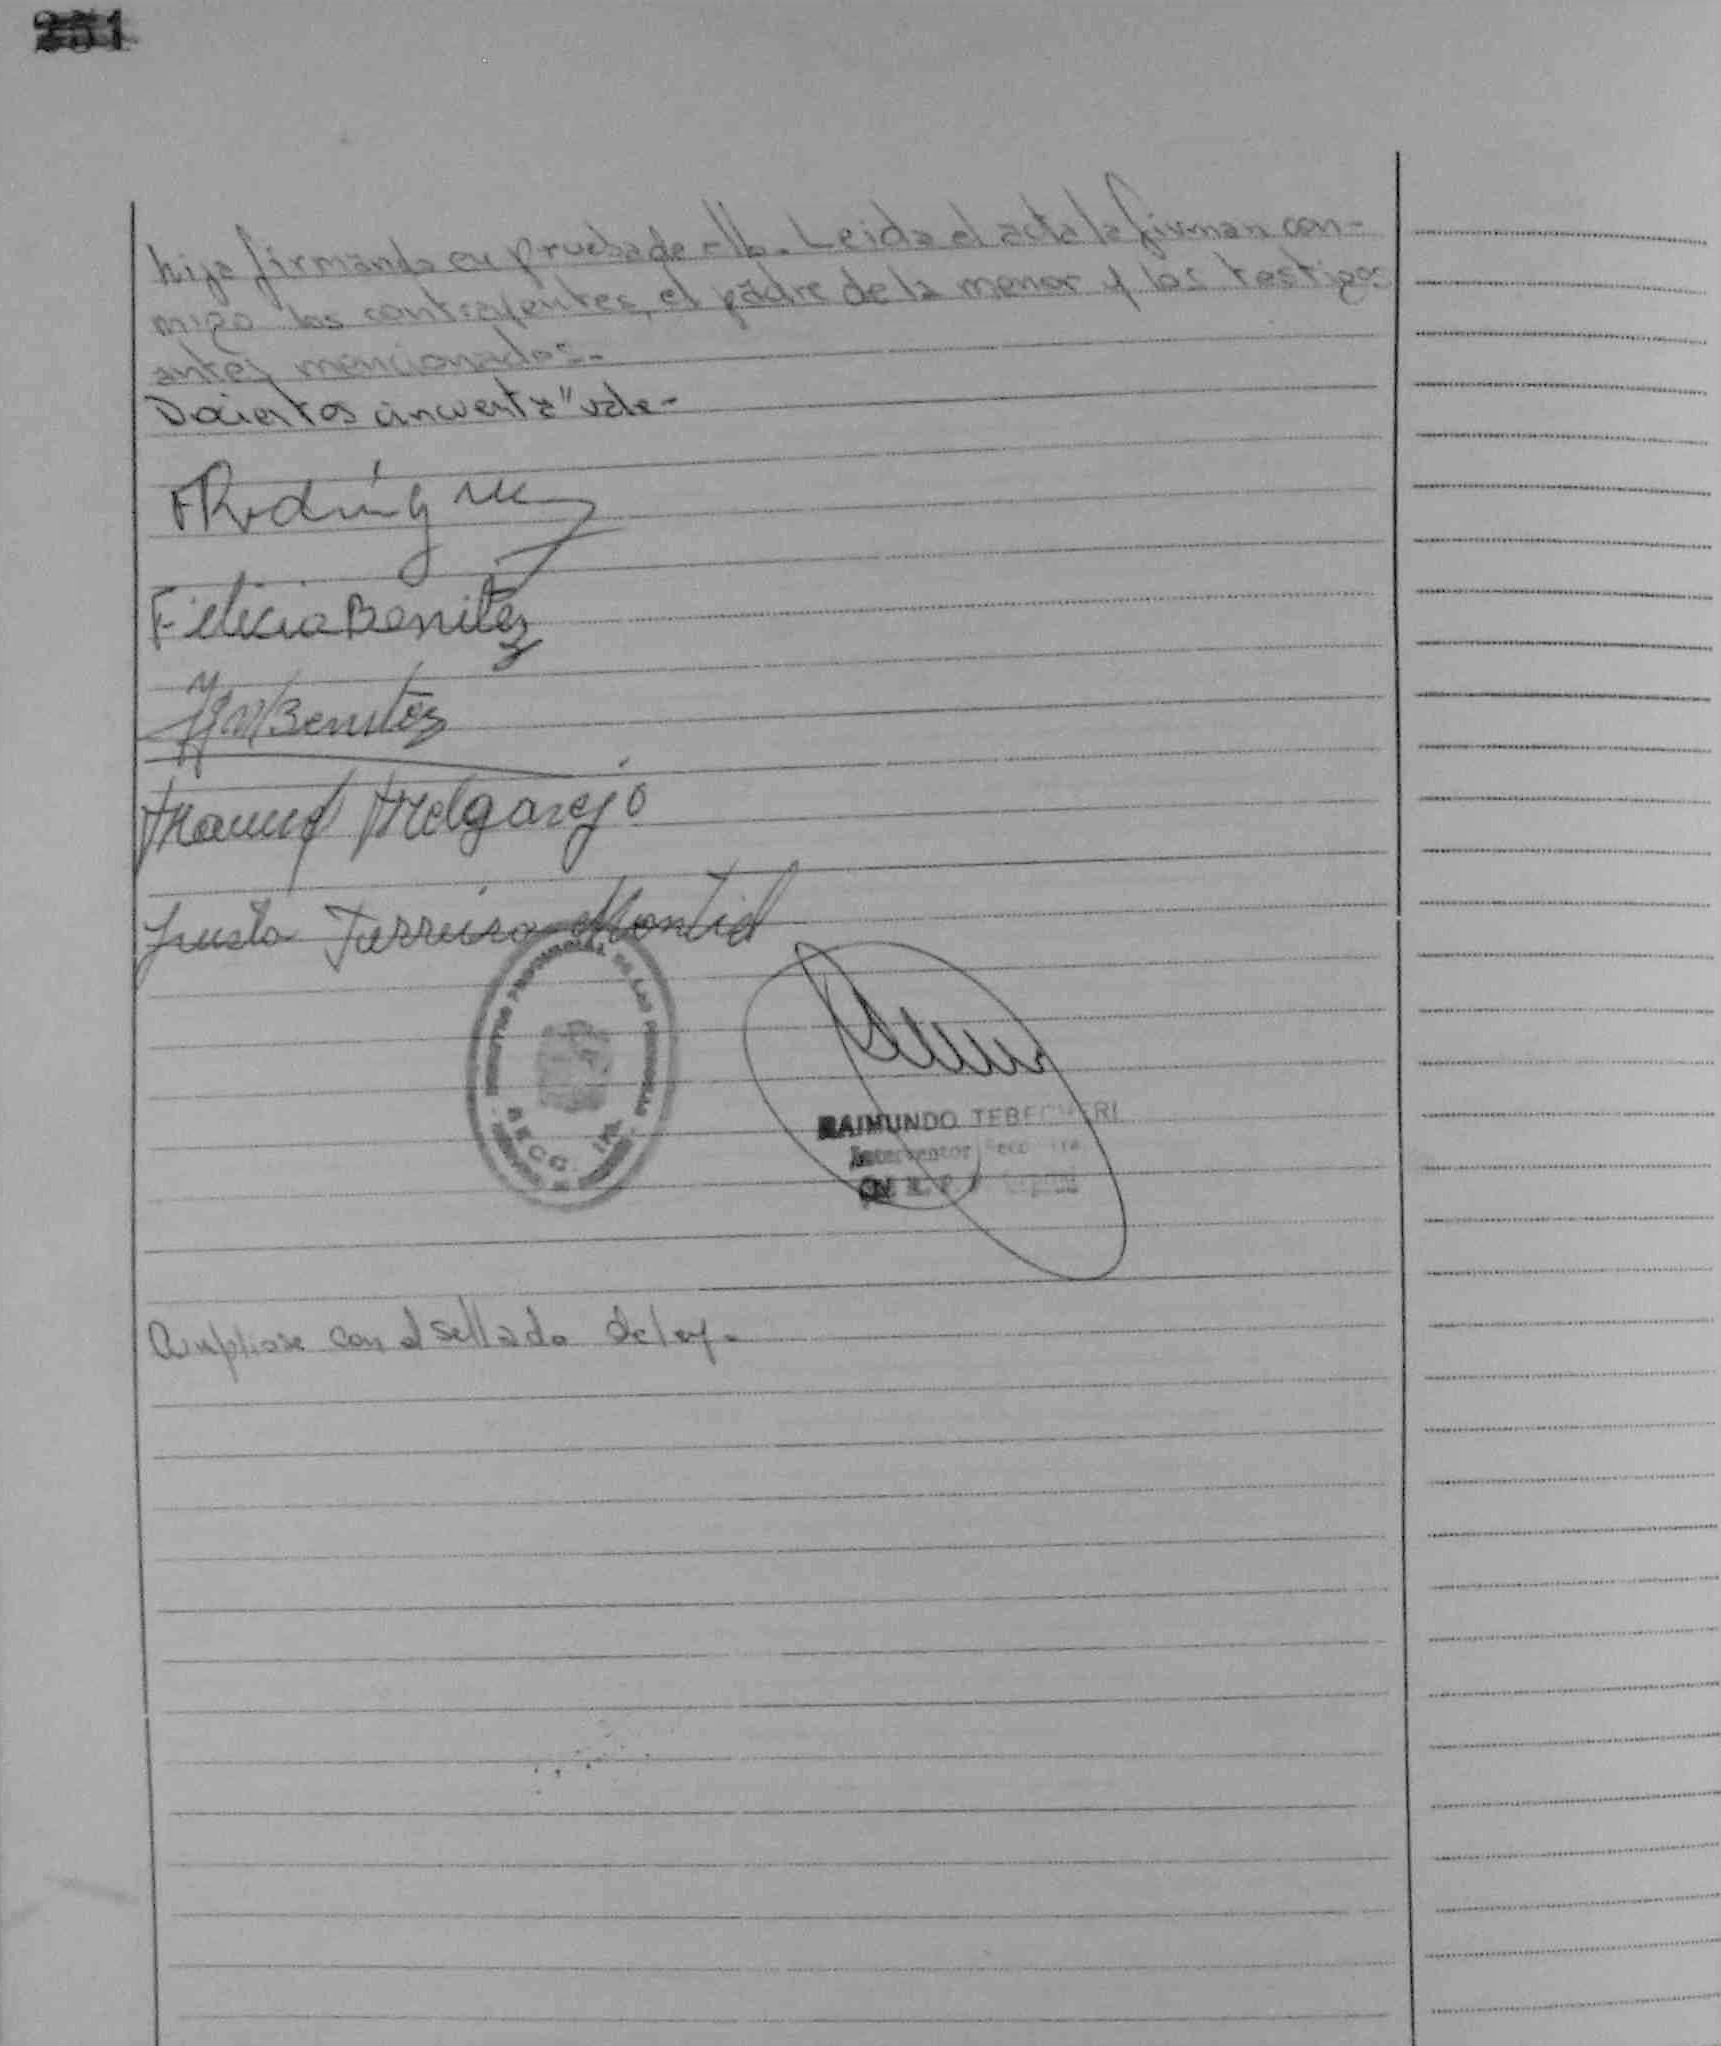 251
hija firmando en prueba de ello. Leida el acta la firman con-
migo los contrayentes, el padre de la menor y los testigos
antes mencionados.-
Docientos cincuenta" vale-
FRodríguez
Felicia Benitez
Benitez
Manuel Melgarejo
Justo Ferreira Montiel
PROVINCIAL DE LAS PERSONAS
SECC. 1ra.
RAIMUNDO TEBECHERI
Interventor Secc 1ra
con el sellado de ley.-